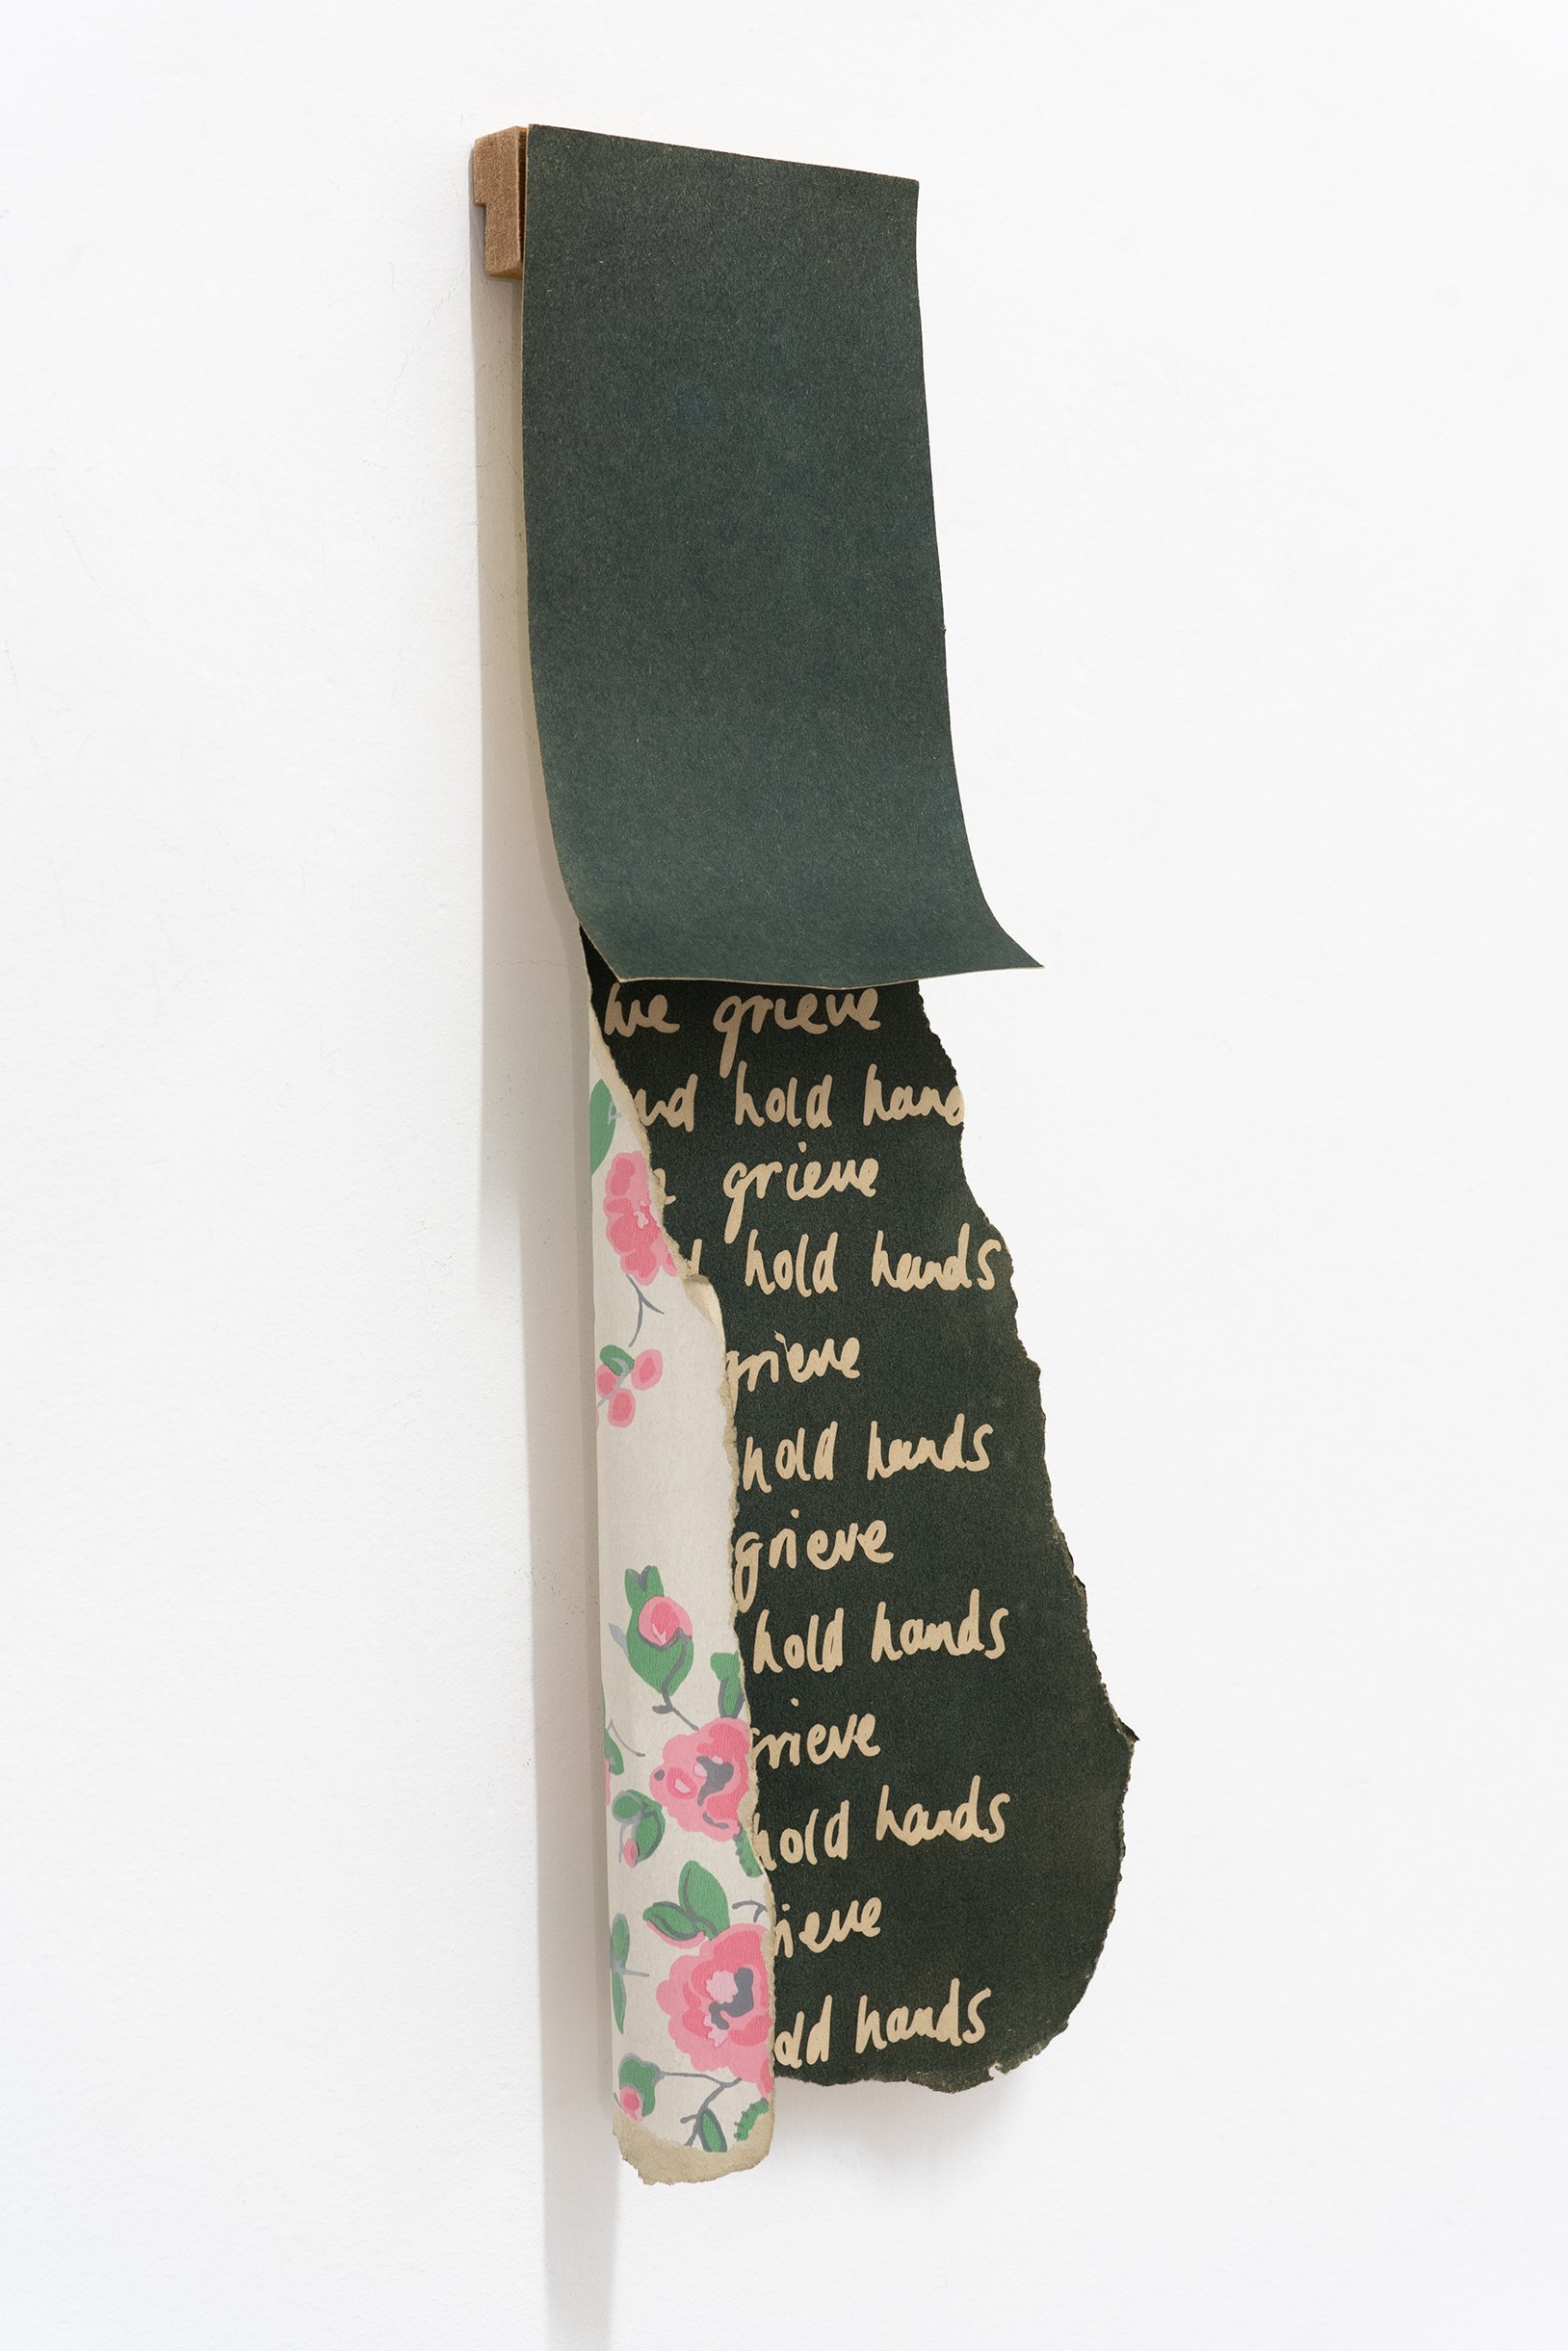 We grieve
and hold hand
grieve
hold hands
grieve
hold hands
grieve
hold hands
grieve
hold hands
ieve
old hands